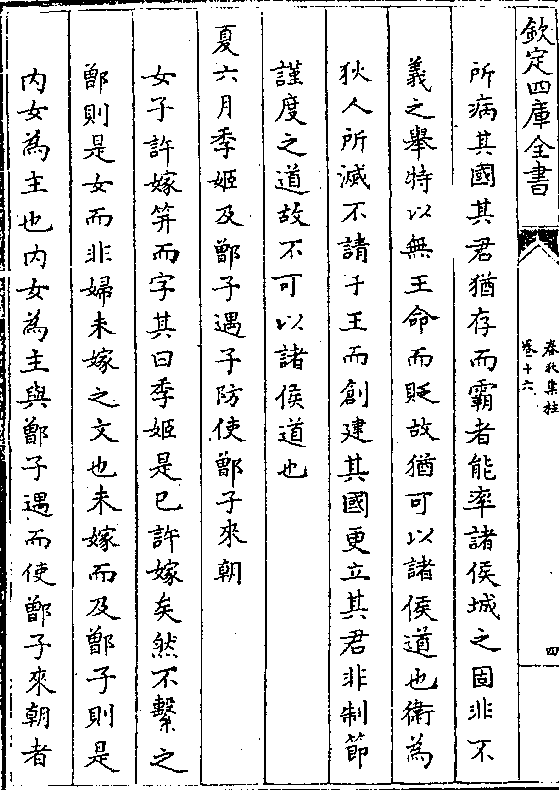 欽定四庫全書
春秋集註
卷十六
四
所病其國其君猶存而霸者能率諸侯城之固非不
義之舉特以無王命而貶故猶可以諸侯道也衛為
狄人所滅不請于王而創建其國更立其君非制節
謹度之道故不可以諸侯道也
夏六月季姬及鄫子遇于防使鄫子來朝
女子許嫁笄而字其曰季姬是已許嫁矣然不繫之
鄫則是女而非婦未嫁之文也未嫁而及鄫子則是
内女為主也内女為主與鄫子遇而使鄫子來朝者